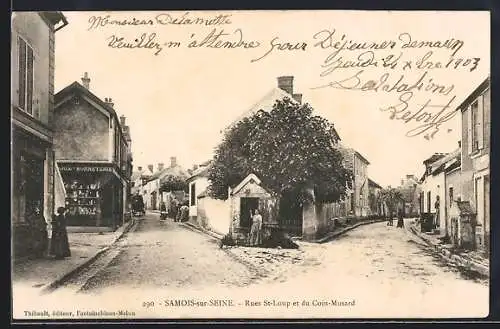 Monsieur Delamotte
Veuillez m'attendre pour Déjeuner demain
Jeudi 24 Xbre 1903
Salutations
290 - SAMOIS-sur-SEINE. - Rues St-Loup et du Coin-Musard
Menard, éditeur, Fontainebleau-Melun